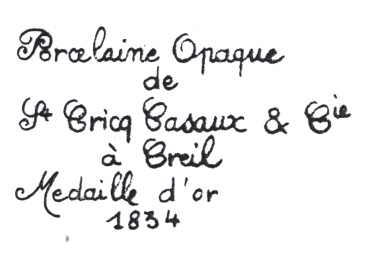 Porcelaine Opaque
de
St Cricq Casaux & Cie
à Creil
Medaille d'or
1834